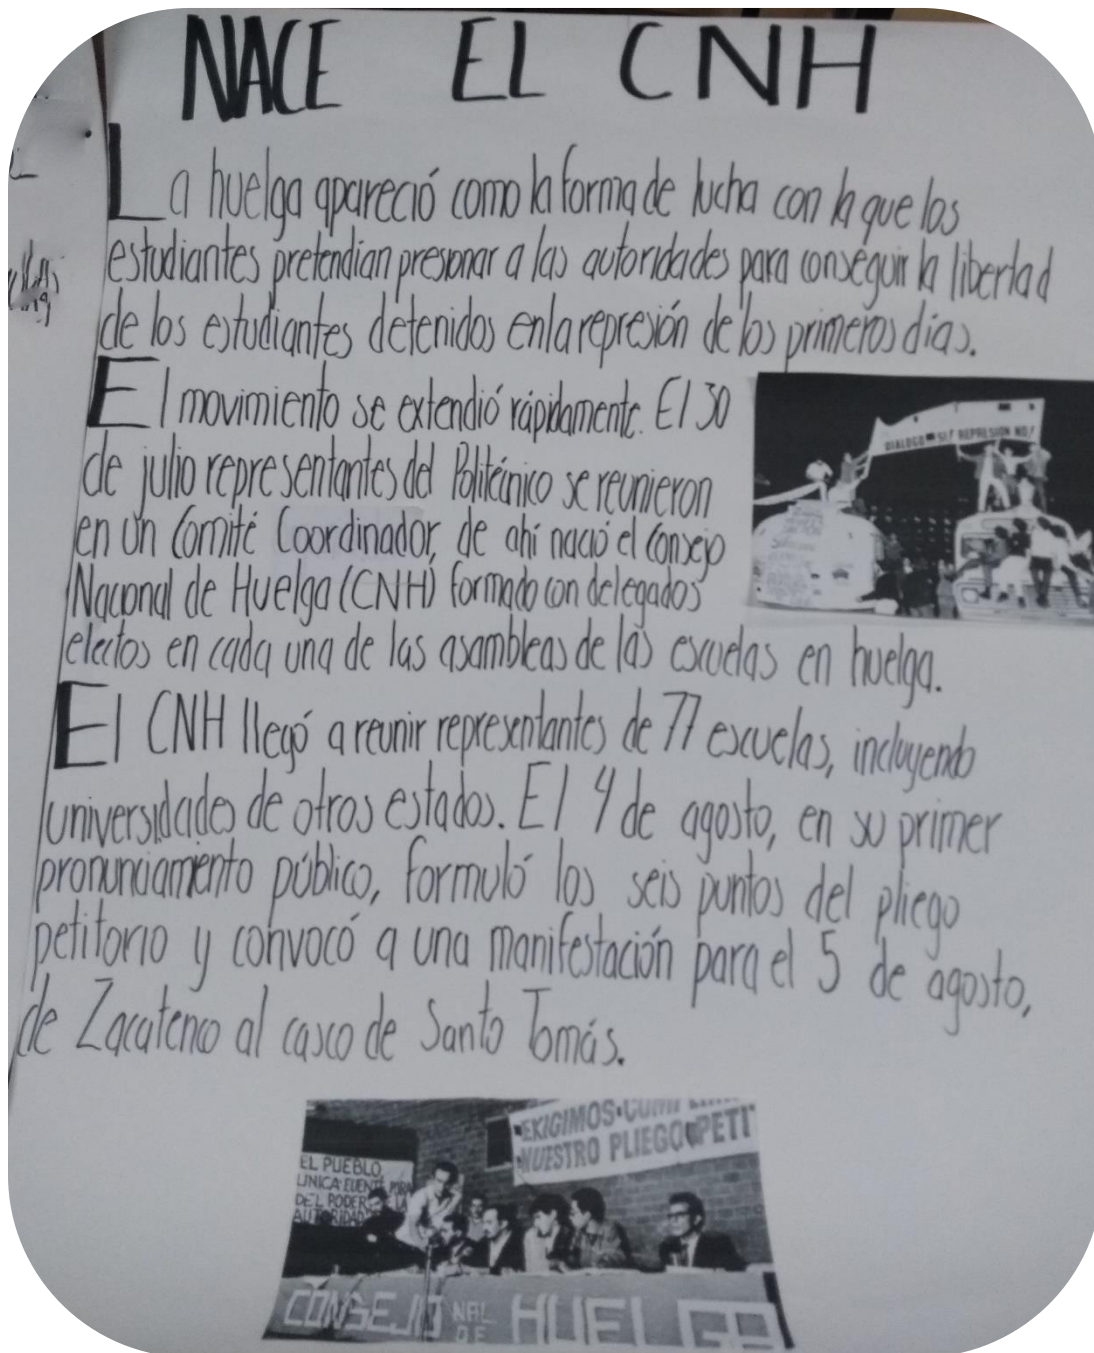 NACE EL CNH
La huelga apareció como la forma de lucha con la que los
estudiantes pretendian presionar a las autoridades para conseguir la libertad
de los estudiantes detenidos en la represión de los primeros días.
El movimiento se extendió rápidamente. El 30
de julio representantes del Politécnico se reunieron
en un Comité Coordinador, de ahí nació el Consejo
Nacional de Huelga (CNH) formado con delegados
electos en cada una de las asambleas de las escuelas en huelga.
El CNH llegó a reunir representantes de 77 escuelas, incluyendo
universidades de otros estados. El 4 de agosto, en su primer
pronunciamiento público, formuló los seis puntos del pliego
petitorio y convocó a una manifestación para el 5 de agosto,
de Zacatenco al casco de Santo Tomás.
DIALOGO SI! REPRESION NO!
EXIGIMOS
NUESTRO PLIEGO PETI
EL PUEBLO
UNICA FUENTE PARA
DEL PODER Y LA
AUTORIDAD
CONSEJO NAL DE HUELGA